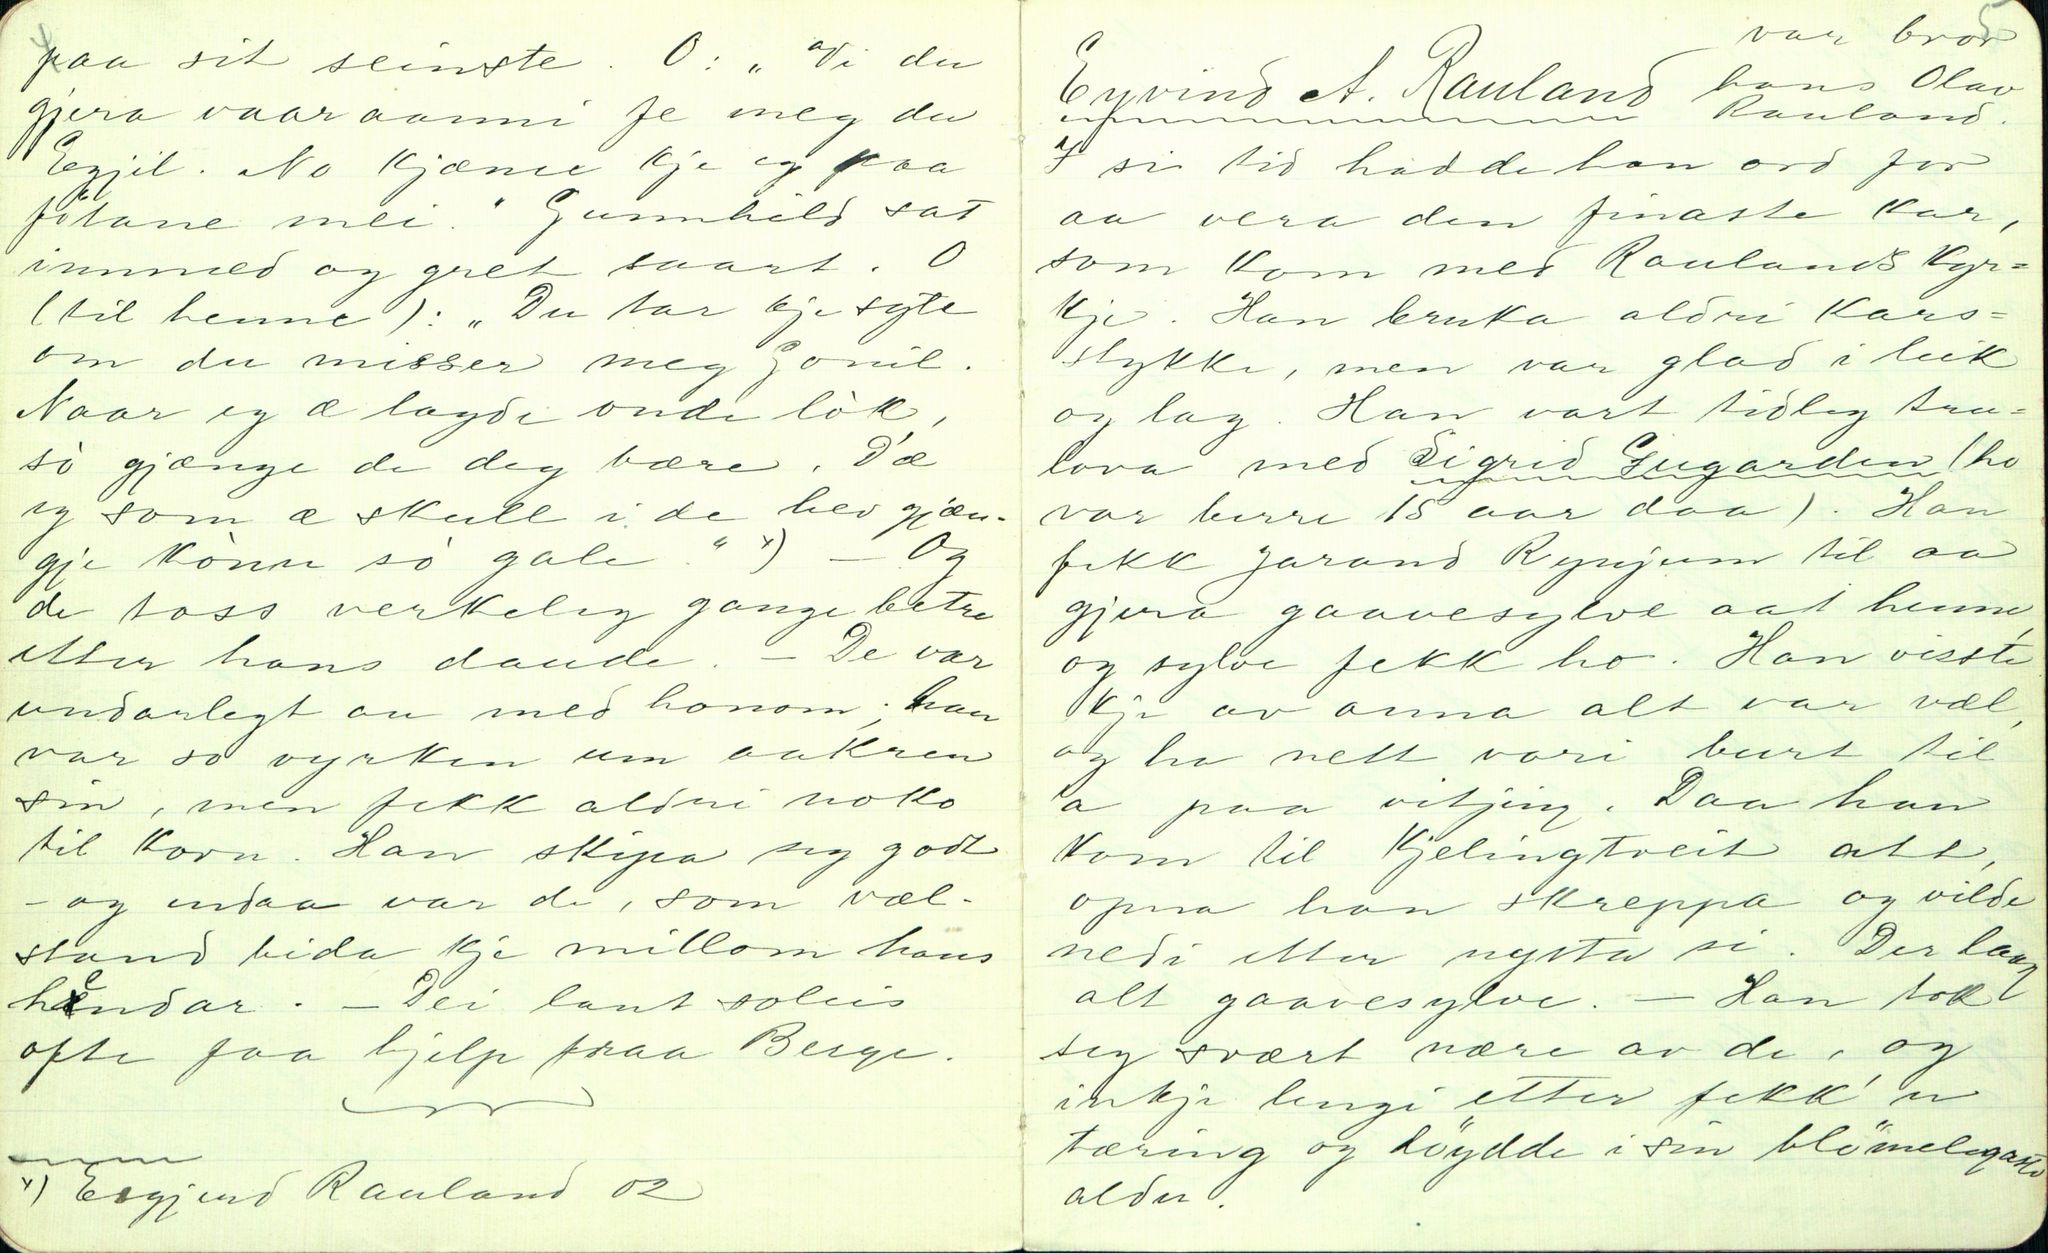 4
paa sit seinste. O: „Vi du
gjera vaaraanni fe meg du
Egjil. No kjænne kje eg paa
føtane mei." Gunnhild sat
innmed og gret saart. O
(til henne): „Du tar kje syte
om du misser meg Gonil.
Naar eg æ lagde onde lòk,
sò gjænge de deg bære. D'æ
eg som æ skull i de hev gjæn-
gje kònn sò gale." x) — Og
de toss verkeleg gange betre
etter hans daude. — De var
undarlegt au med honom; han
var so vyrken um aakren
sin, men fekk aldri noko
til korn. Han skipa seg godt
— og endaa var de, som væl-
stand bida kje millom hans
hendar. — Dei laut soleis
ofte faa hjelp fraa Berge.
x) Eigjend Rauland 02
5
var bror
Eyvind A. Rauland hans Olav
Rauland.
I si tid hadde han ord for
aa vera den finaste kar,
som kom med Raulands kyr=
kje. Han bruka aldri kars=
stykke, men var glad i leik
og lag. Han vart tidleg tru=
lova med Sigrid Gugarden (ho
var berre 15 aar daa). Han
fekk Jarand Rynjum til aa
gjera gaavesylve aat henne,
og sylve fekk ho. Han visste
kje av anna alt var væl,
og ha nett vori burt til
a paa vitjing. Daa han
kom til Kjelingtveit att,
opna han skreppa og vilde
nedi etter nysta si. Der laag
alt gaavesylve. — Han tok
seg svært nære av de, og
inkje lengi etter fekk'n
tæring og döydde i sin blömelegaste
alder.